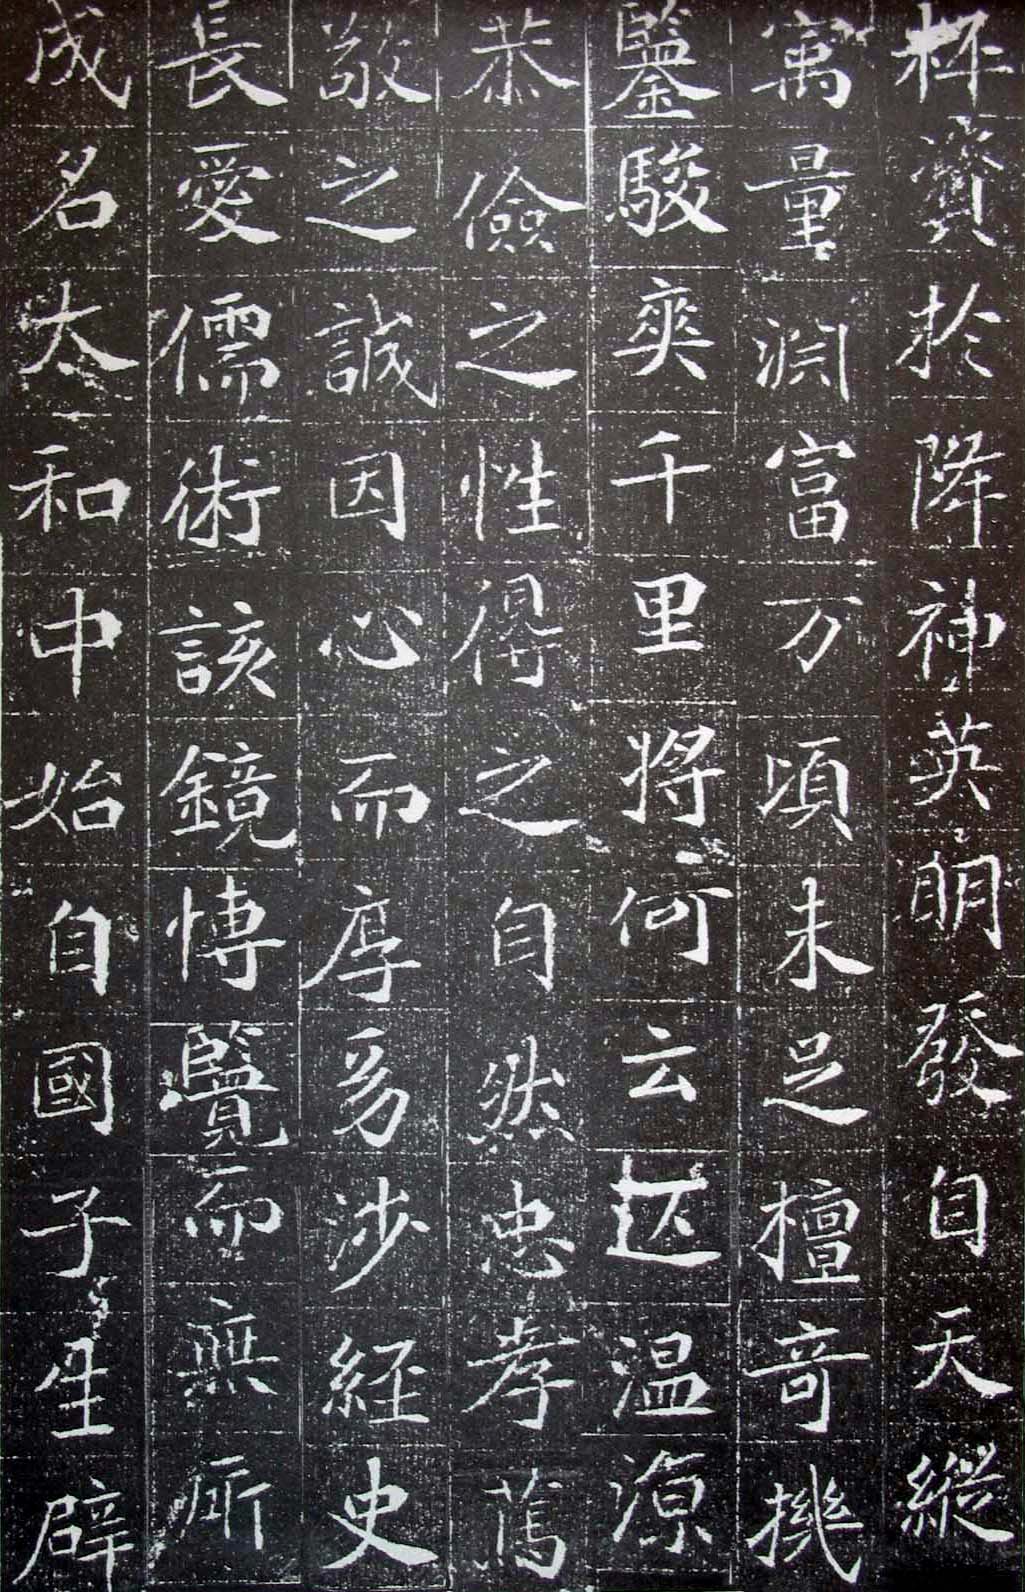 杯資於降神英明發自天縱
寓量渕富万頃未足檀奇機
鑒駿爽千里將何云匹温源
恭儉之性得之自然忠孝篤
敬之誠因心而厚多涉経史
長愛儒術該鏡博覽而無所
成名太和中始自國子生辟